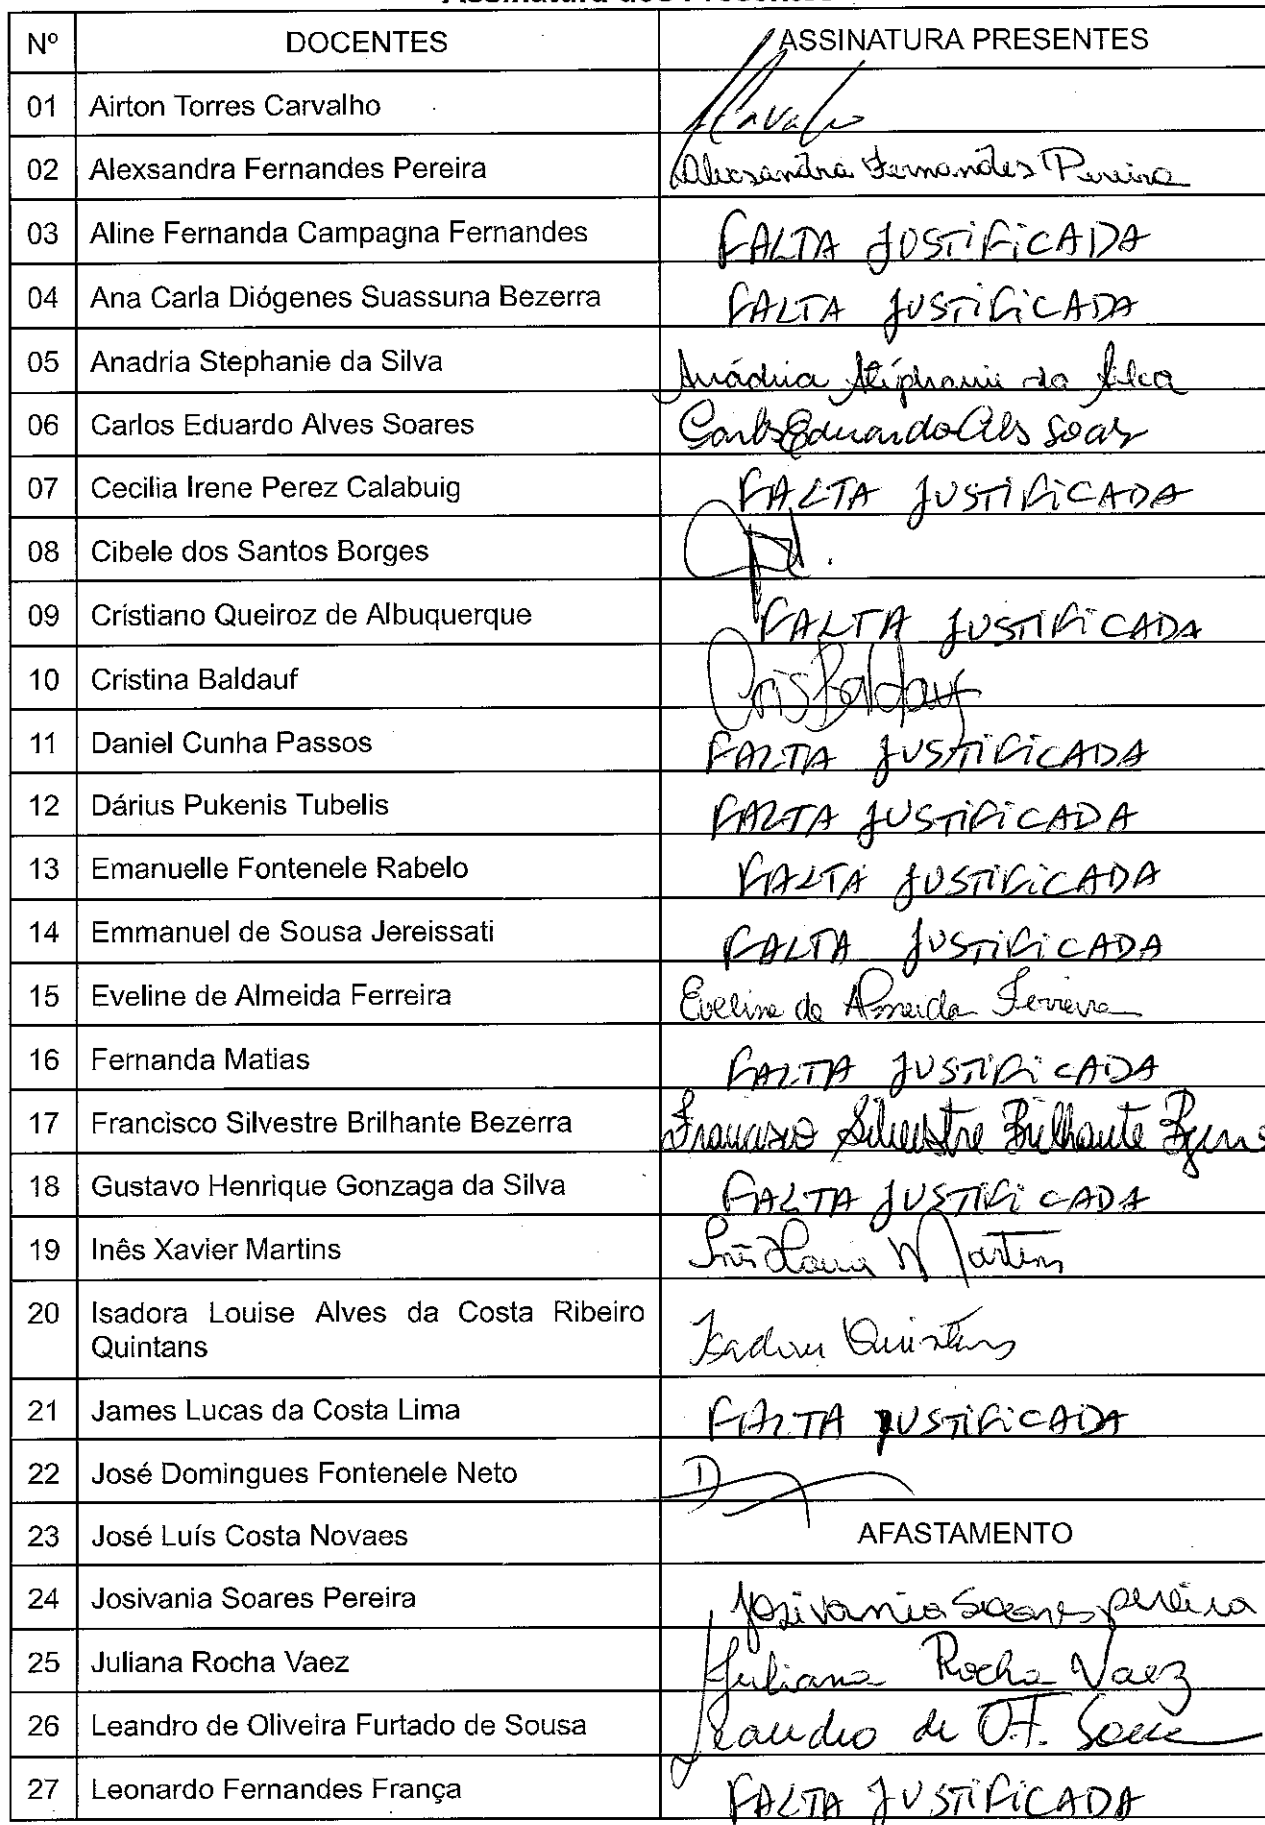 Assinatura dos Presentes
Nº DOCENTES ASSINATURA PRESENTES
01 Airton Torres Carvalho Carvalho
02 Alexsandra Fernandes Pereira Alexsandra Fernandes Pereira
03 Aline Fernanda Campagna Fernandes FALTA JUSTIFICADA
04 Ana Carla Diógenes Suassuna Bezerra FALTA JUSTIFICADA
05 Anadria Stephanie da Silva Anádria Stéphanie da Silva
06 Carlos Eduardo Alves Soares Carlos Eduardo Alves Soares
07 Cecilia Irene Perez Calabuig FALTA JUSTIFICADA
08 Cibele dos Santos Borges
09 Cristiano Queiroz de Albuquerque FALTA JUSTIFICADA
10 Cristina Baldauf Cris Baldauf
11 Daniel Cunha Passos FALTA JUSTIFICADA
12 Dárius Pukenis Tubelis FALTA JUSTIFICADA
13 Emanuelle Fontenele Rabelo FALTA JUSTIFICADA
14 Emmanuel de Sousa Jereissati FALTA JUSTIFICADA
15 Eveline de Almeida Ferreira Eveline de Almeida Ferreira
16 Fernanda Matias FALTA JUSTIFICADA
17 Francisco Silvestre Brilhante Bezerra Francisco Silvestre Brilhante Bezerra
18 Gustavo Henrique Gonzaga da Silva FALTA JUSTIFICADA
19 Inês Xavier Martins Inês Xavier Martins
20 Isadora Louise Alves da Costa Ribeiro
Quintans Isadora Quintans
21 James Lucas da Costa Lima FALTA JUSTIFICADA
22 José Domingues Fontenele Neto
23 José Luís Costa Novaes AFASTAMENTO
24 Josivania Soares Pereira Josivania Soares pereira
25 Juliana Rocha Vaez Juliana Rocha Vaez
26 Leandro de Oliveira Furtado de Sousa Leandro de O.F. Sousa
27 Leonardo Fernandes França FALTA JUSTIFICADA